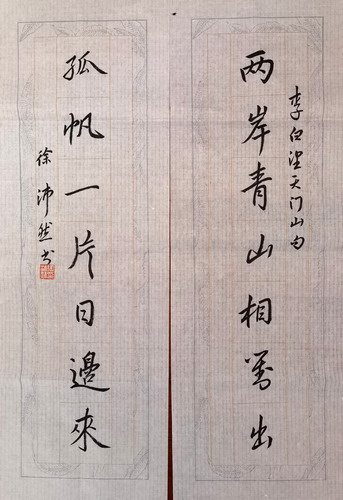 李白望天门山句
两岸青山相对出
孤帆一片日邊來
徐沛然书